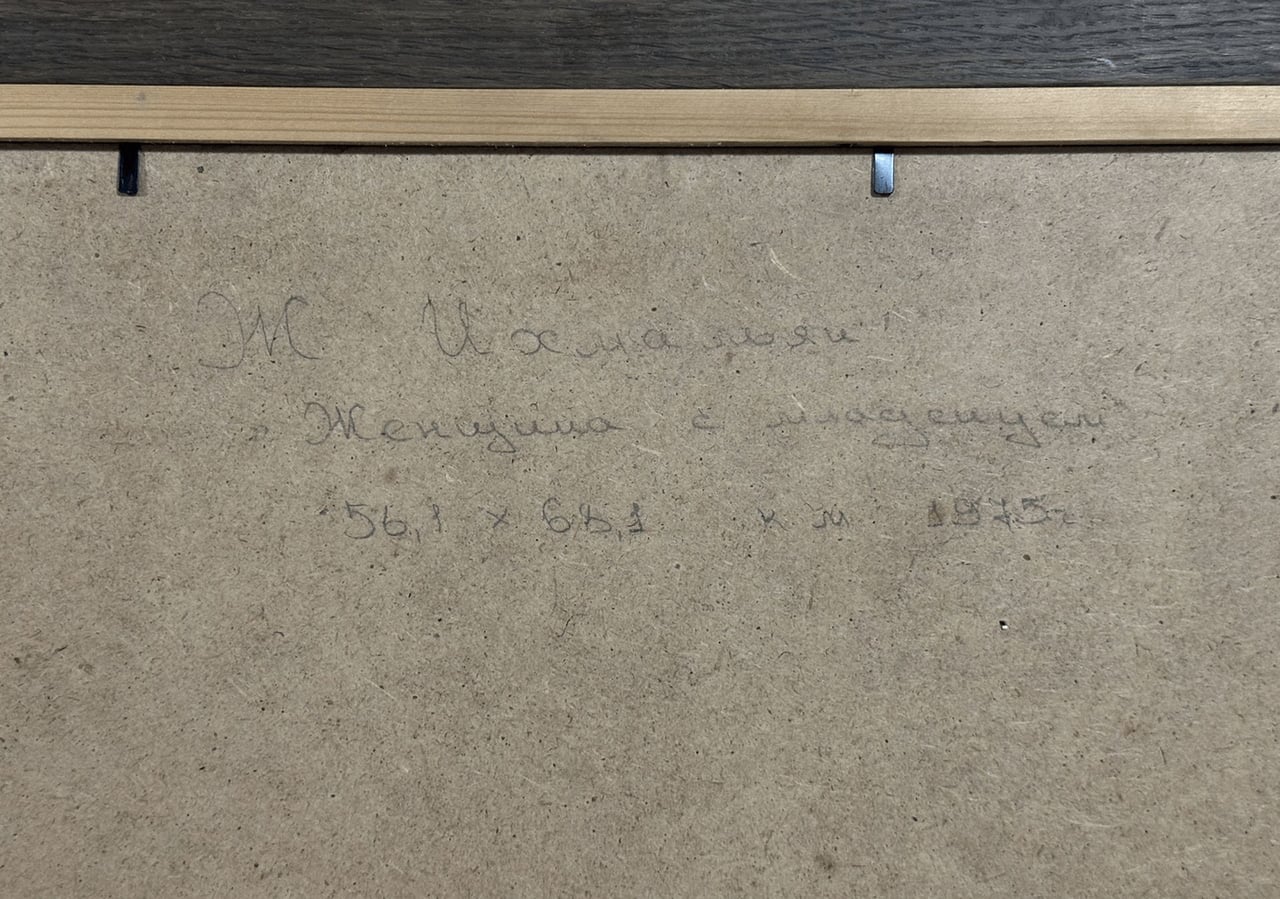 Ж Ихмальян
„Женщина с младенцем"
56,1 х 68,1 к м 1975г